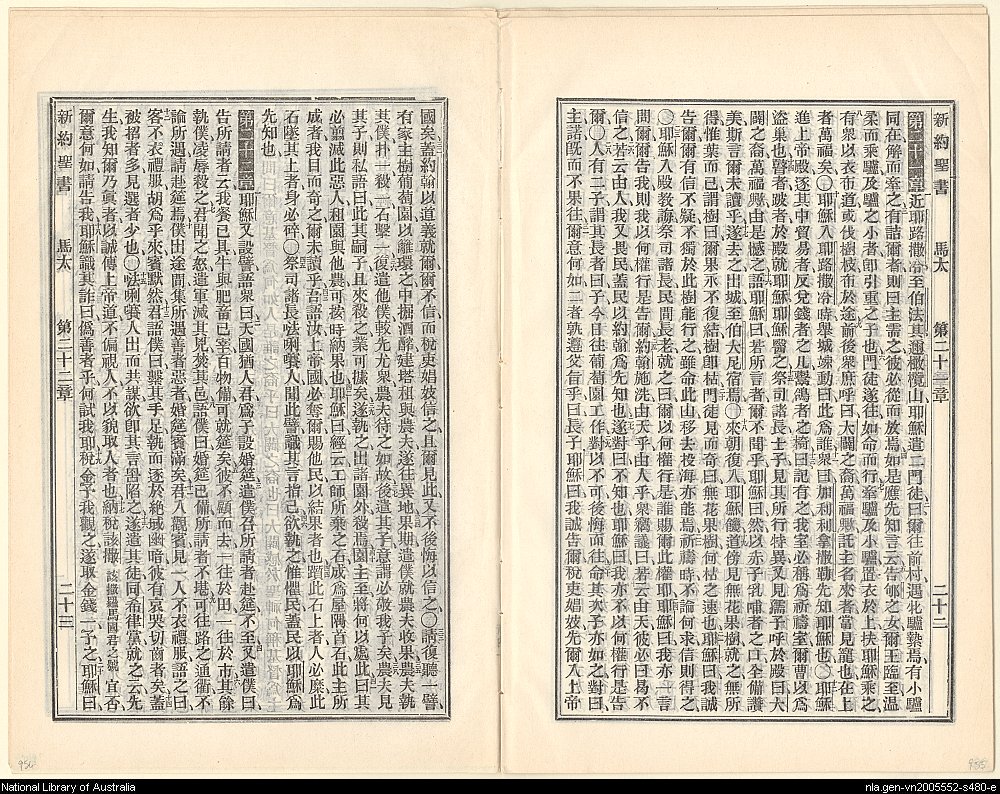 新約聖書 馬太 第二十一章 二十二
第二十一章近耶路撒冷至伯法其邇橄欖山耶穌遣二門徒曰爾往前村遇牝驢縶焉有小驢
同在解而牽之有詰爾者則曰主需之彼必從而放焉如是應先知言云告郇之女爾王臨至溫
柔而乘驢及驢之小者卽引重之子也門徒遂往如命而行牽驢及小驢置衣於上扶耶穌乘之
有衆以衣布道或伐樹枝布於途前後衆庶呼曰大闢之裔萬福歟託主名來者當見寵也在上
者萬福矣〇耶穌入耶路撒冷時舉城竦動曰此爲誰衆曰加利利拿撒勒先知耶穌也〇耶穌
進上帝殿逐其中貿易者反兌錢者之几鬻鴿者之椅曰記有之我室必稱爲祈禱室爾曹以爲
盜巢也瞽者跛者於殿就耶穌耶穌醫之祭司諸長士子見其所行特異又見孺子呼於殿曰大
闢之裔萬福歟由是憾之語耶穌曰若所言者爾不聞乎耶穌曰然以赤子乳哺者之口全備讚
美斯言爾未讀乎遂去之出城至伯大尼宿焉〇來朝復入耶穌饑道傍見無花果樹就之無所
得惟葉而已謂樹曰爾果永不復結樹卽枯門徒見而奇曰無花果樹何枯之速也耶穌曰我誠
告爾爾有信不疑不獨於此樹能行之雖命此山移去投海亦能焉祈禱時不論何求信則得之
〇耶穌入殿敎誨祭司諸長民間長老就之曰爾以何權行是誰賜爾此權耶耶穌曰我亦一言
問爾爾告我我則以何權行是告爾約翰施洗由天乎由人乎衆竊議曰若云由天彼必曰曷不
信之若云由人我又畏民蓋民以約翰爲先知也遂對曰不知也耶穌曰我亦不以何權行是告
爾〇人有二子謂其長者曰子今日往葡萄園工作對以不可後悔而往命其次子亦如之對曰
主諾旣而不果往爾意何如二者孰遵父旨乎曰長子耶穌曰我誠告爾稅吏娼妓先爾入上帝
國矣蓋約翰以道義就爾爾不信而稅吏娼妓信之且爾見此又不後悔以信之〇請復聽一譬
有家主樹葡萄園以籬環之中掘酒醡建塔租與農夫遂往異地果期遣僕就農夫收果農夫執
其僕扑一殺一石擊一復遣他僕較先尤衆農夫待之如故後遣其子意謂必敬我子矣農夫見
其子則私語曰此其嗣子且來殺之業可據矣遂執之出諸園外殺焉園主至將何以處此曰其
必翦滅此惡人租園與他農可按時納果也耶穌曰經云工師所棄之石成爲屋隅首石此主所
成者我目而奇之爾未讀乎吾語汝上帝國必奪爾賜他民以結果者也躓此石上者人必糜此
石墜其上者身必碎〇祭司諸長𠵽唎㘔人聞此譬識其言指己欲執之惟懼民蓋民以耶穌爲
先知也
第二十二章耶穌又設譬語衆曰天國猶人君爲子設婚筵遣僕召所請者赴筵不至又遣僕曰
告所請者云我餐已具牛與肥畜已宰百物備可就筵矣彼不顧而去一往於田一往於市其餘
執僕凌辱殺之君聞之怒遣軍滅其兇焚其邑語僕曰婚筵已備所請者不堪可往路之通衢不
論所遇請赴筵焉僕出途間集所遇善者惡者婚筵賓滿矣君入觀賓見一人不衣禮服語之曰
客不衣禮服胡爲乎來賓默然君語僕曰縶其手足執而逐於絕域幽暗彼有哀哭切齒者矣蓋
被招者多見選者少也〇𠵽唎㘔人出而共謀欲卽其言罟陷之遂遣其徒同希律黨就之云先
生我知爾乃眞者以誠傳上帝道不偏視人不以貌取人者也納稅該撒該撒羅馬國君之號宜否
爾意何如請告我耶穌識其詐曰僞善者乎何試我耶稅金予我觀之遂取金錢一予之耶穌曰
新約聖書 馬太 第二十二章 二十三
956
955
National Library of Australia
nla.gen-vn2005552-s480-e